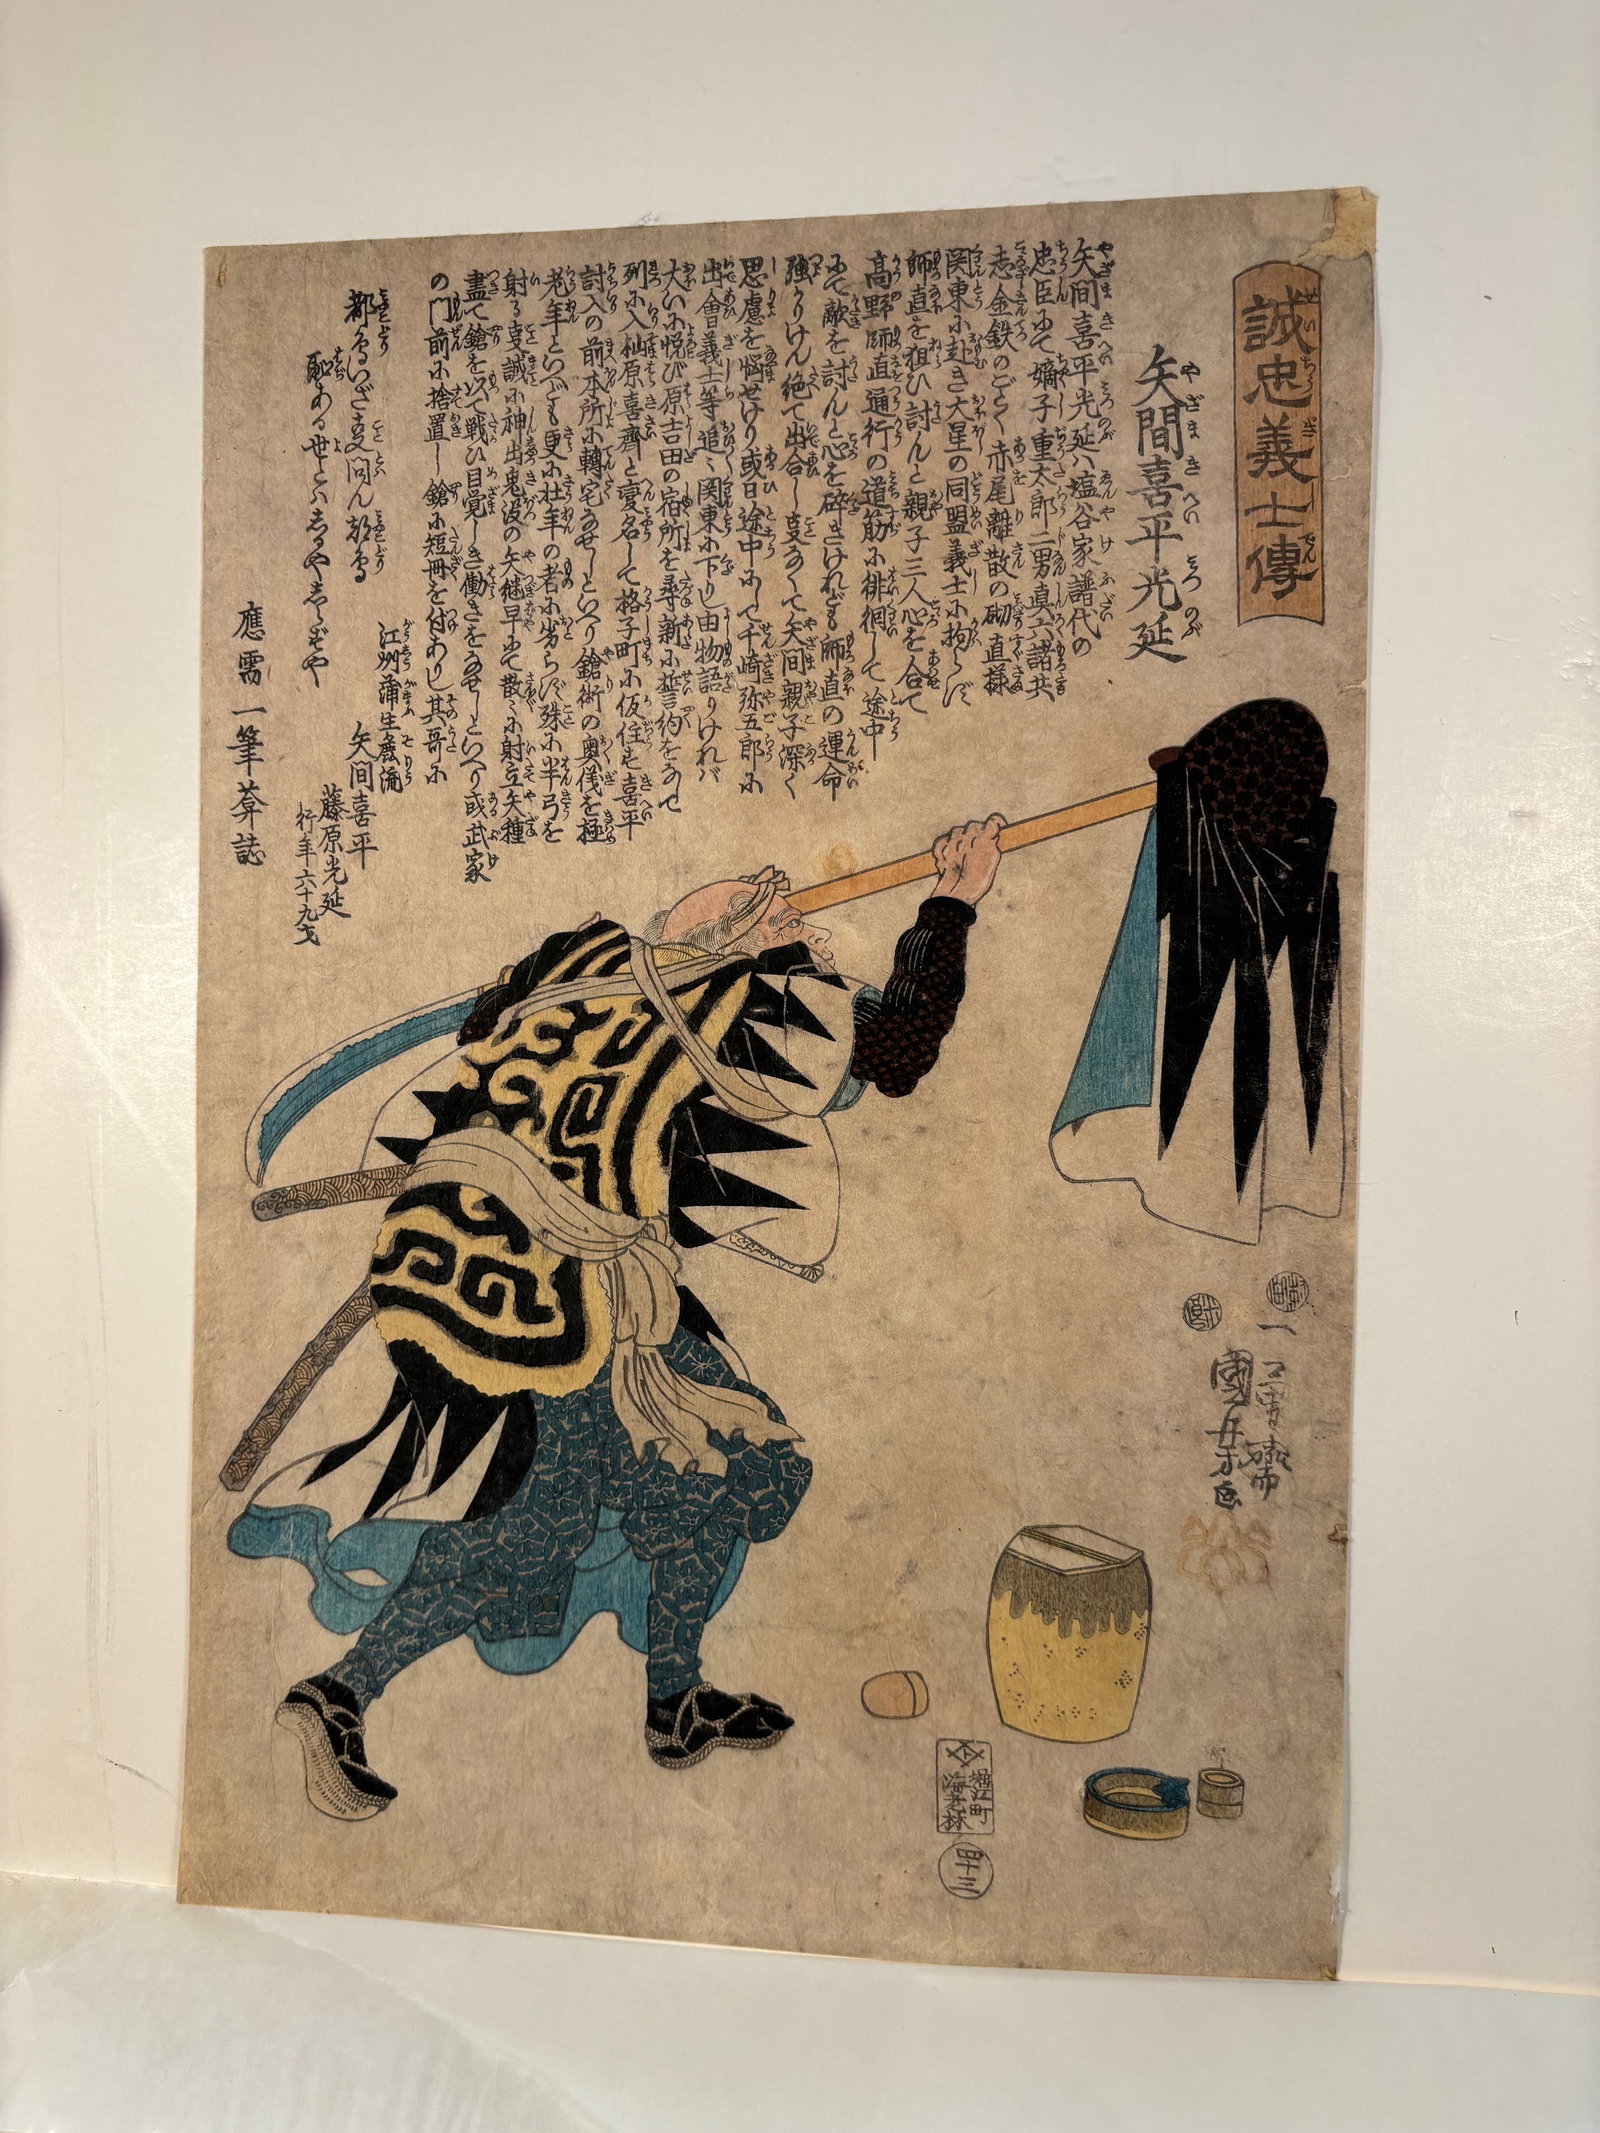 誠忠義士傳
矢間喜平光延
矢間喜平光延ハ塩谷家譜代の
忠臣にて嫡子重太郎二男真六諸共
志金鉄のごとく赤尾離散の砌直様
関東に赴き大星の同盟義士に拘らず
師直を狙ひ討んと親子三人心を合て
高野師直通行の道筋に徘徊して途中
にて敵を討んと心を砕きけれども師直の運命
強かりけん絶て出合し支なくて矢間親子深く
思慮を悩せけり或日途中にして千崎弥五郎に
出會義士等追々関東に下りし由物語りけれバ
大いに悦び原吉田の宿所を尋新に誓約をなして
列に入杣原喜齊と変名して格子町に仮住す喜平
討入の前本所に轉宅なせしといへり鎗術の奥儀を極
老年といへども更に壮年の者に劣らず殊に半弓を
射る支誠に神出鬼没の矢継早にて散々に射立矢種
盡て鎗を以て戦ひ目覚しき働きをなせしといへり或武家
の門前に捨置し鎗に短冊を付ありし其哥に
都鳥いざ支問ん都鳥
恥ある世とハしるやしらずや
江州蒲生庶流
矢間喜平
藤原光延
行年六十九才
應需一筆菴誌
村田
米良
一勇齋
國芳画
堀江町
海老林
四十三